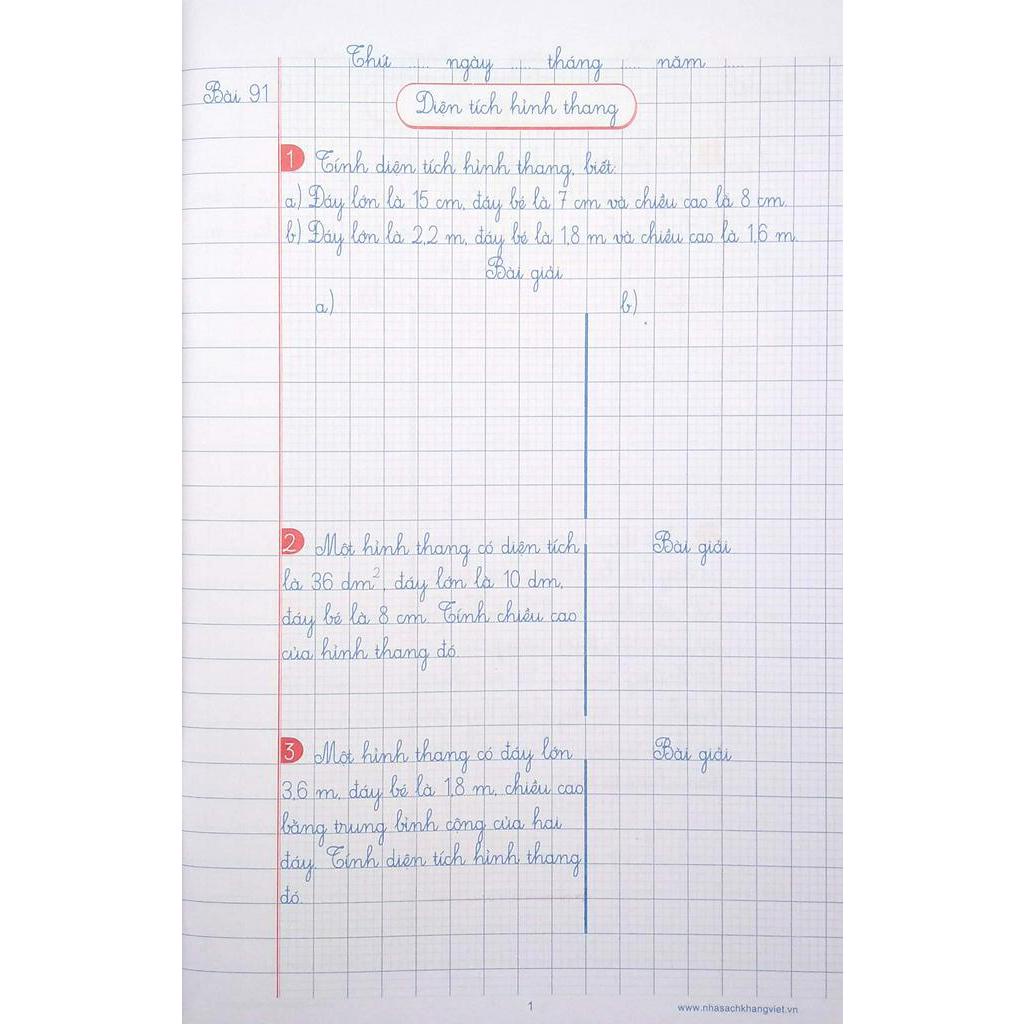 Thứ ..... ngày ..... tháng ..... năm .....
Bài 91
Diện tích hình thang
1 Tính diện tích hình thang, biết:
a) Đáy lớn là 15 cm, đáy bé là 7 cm và chiều cao là 8 cm.
b) Đáy lớn là 2,2 m, đáy bé là 1,8 m và chiều cao là 1,6 m.
Bài giải
a) b)
2 Một hình thang có diện tích
là 36 dm², đáy lớn là 10 dm,
đáy bé là 8 cm. Tính chiều cao
của hình thang đó.
Bài giải
3 Một hình thang có đáy lớn
3,6 m, đáy bé là 1,8 m, chiều cao
bằng trung bình cộng của hai
đáy. Tính diện tích hình thang
đó.
Bài giải
1
www.nhasachkhangviet.vn